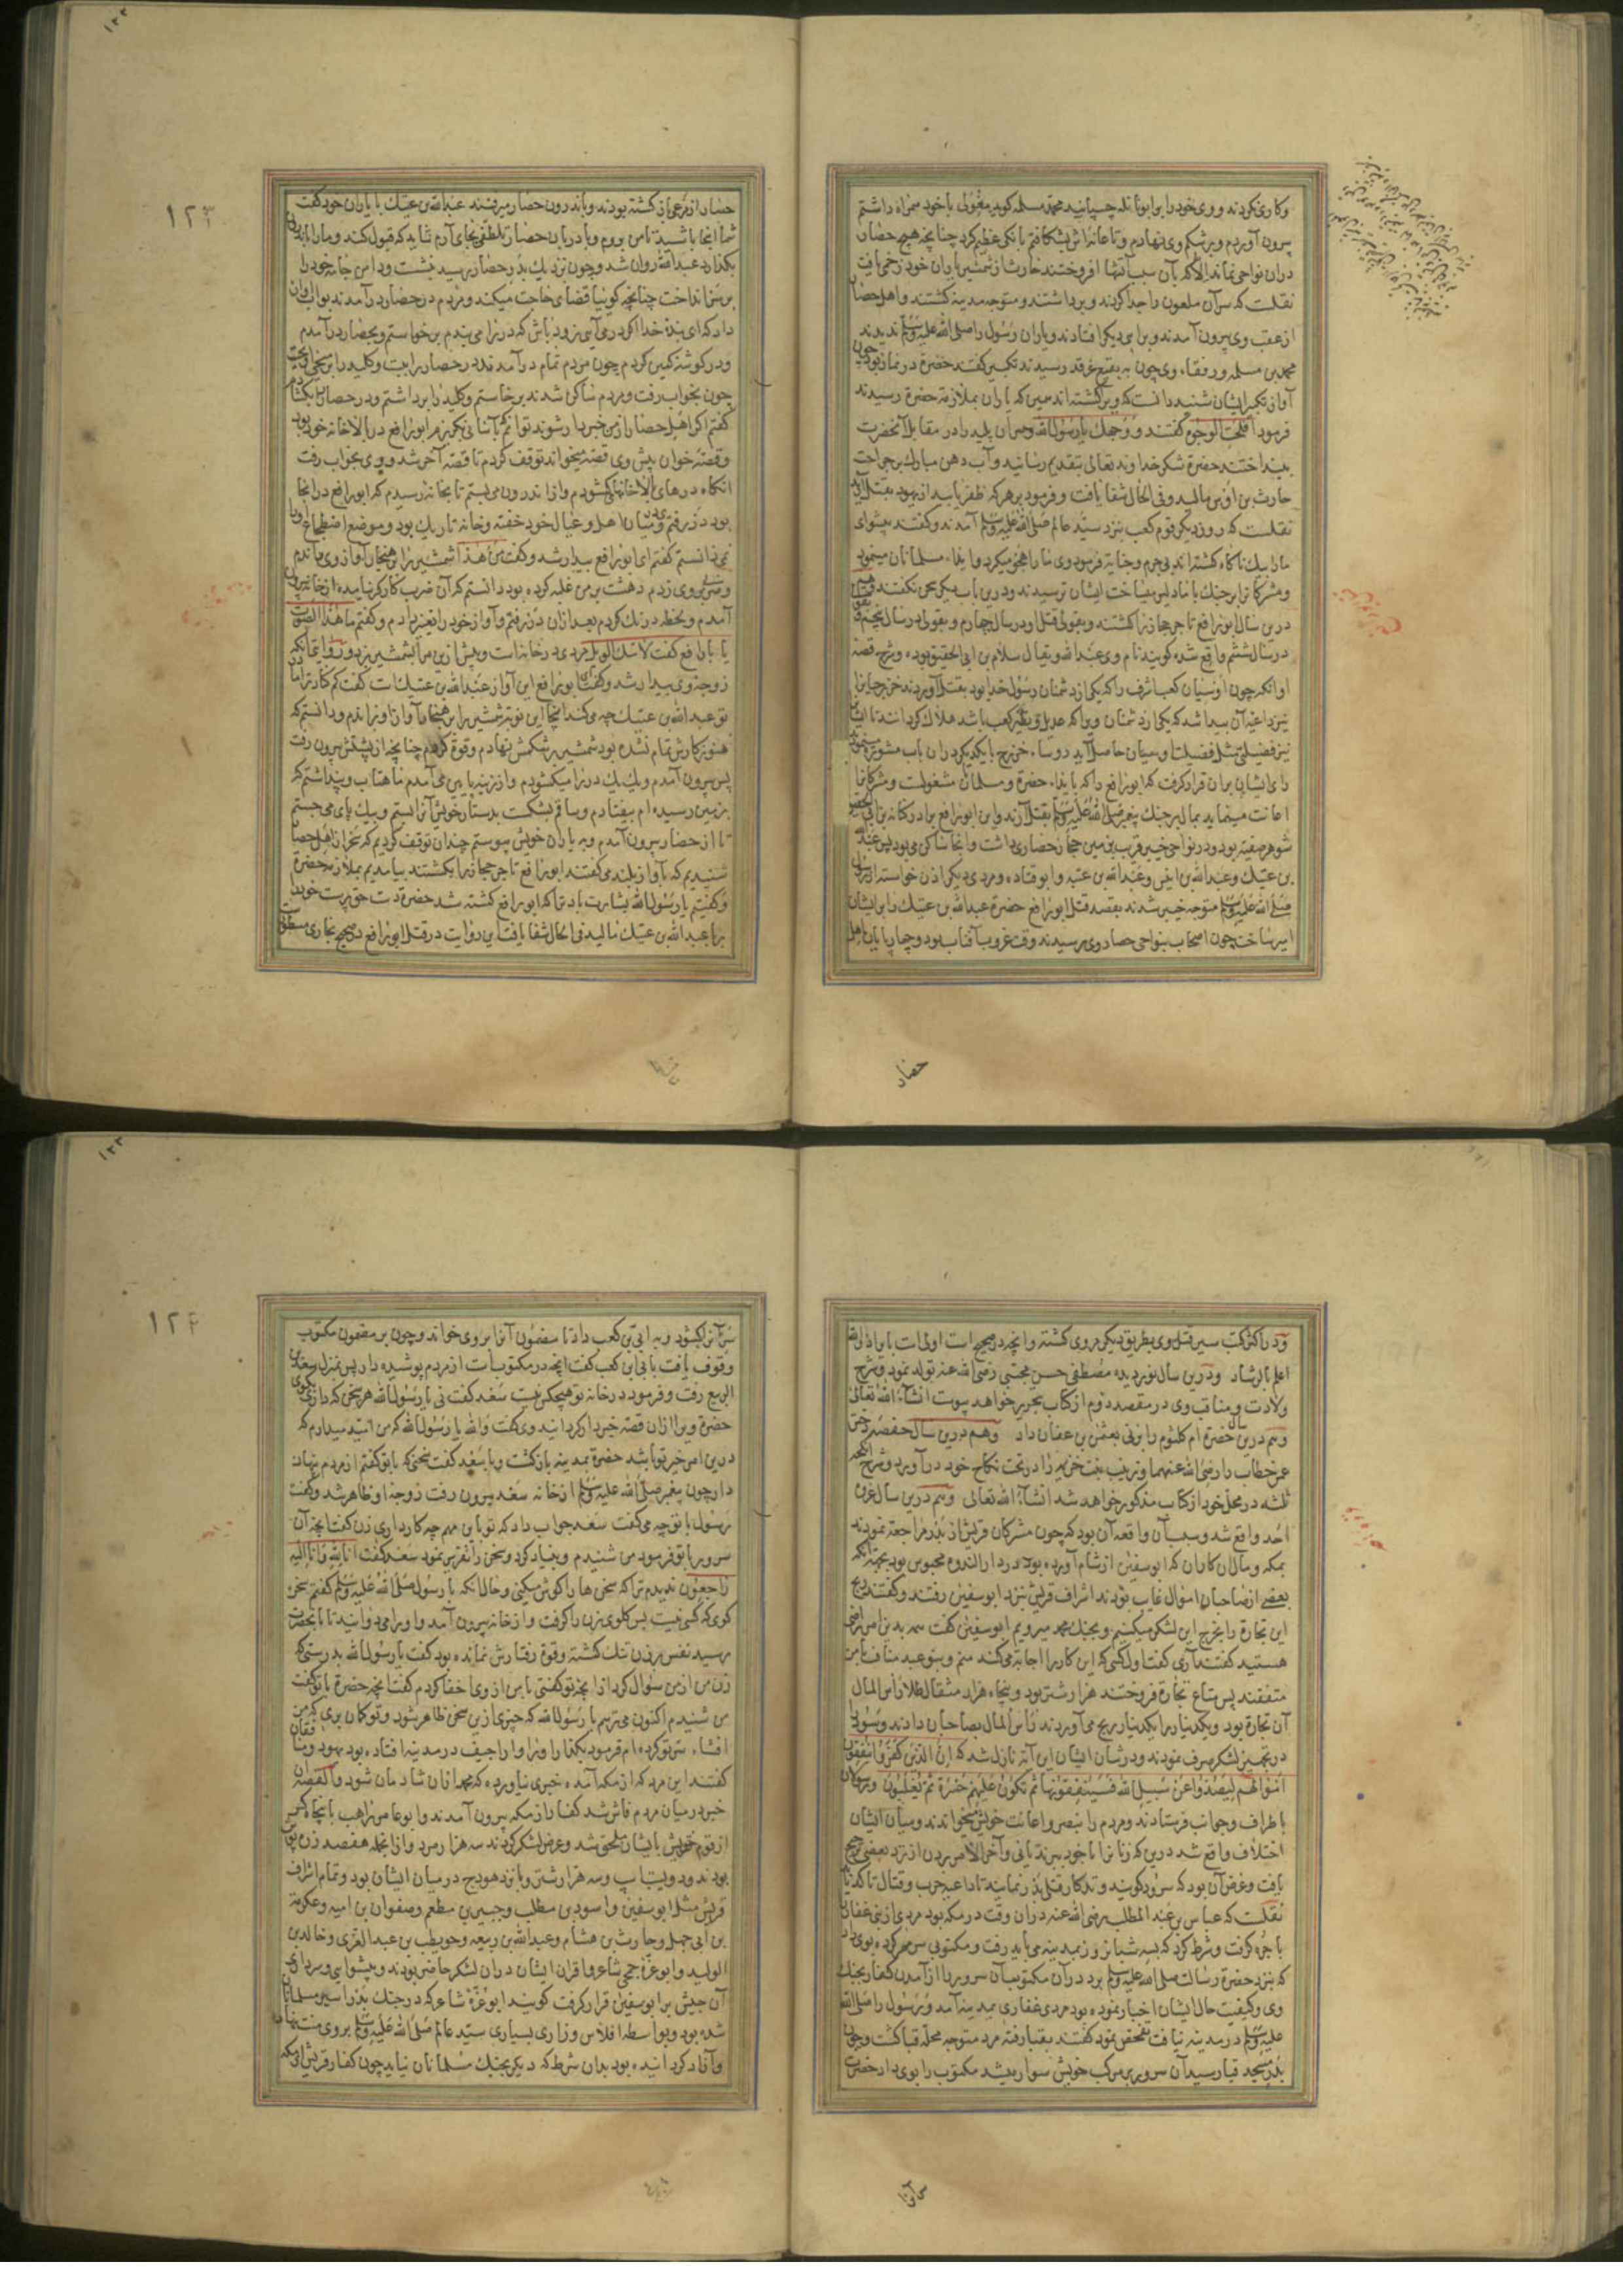 وکاری نکردند و وی خود را برابو نائله چسپانید محمد مسلمه کوید مغولی باخود همراه داشتم
بیرون آوردم و بر شکم وی نهادم و تا عانه اش بشکافتم بانکی عظیم کرد چنانچه هیچ حصار
دران نواحی نماند الا که بآن سبب آتشها افروختند حارث از شمشیر یاران خود زخمی یافت
نقلست که سر آن ملعون را جدا کردند و برداشتند و متوجه مدینه کشتند و اهل حصار
از عقب وی بیرون آمدند و براهی دیکر افتادند و یاران رسول را صلی الله علیه وسلم ندیدند
محمد بن مسلمه و رفقاء وی چون به بقیع غرقد رسیدند تکبیر کفتند حضرة در نماز بود چون
آواز تکبیر ایشان شنید دانست که ویرا کشته اند همین که یاران بملازمة حضرة رسیدند
فرمود افلحت الوجوه کفتند و وجهک یا رسول الله و سر آن پلید را در مقابل آنحضرت
بینداختند حضرة شکر خداوند تعالی بتقدیم رسانید و آب دهن مبارک بر جراحت
حارث بن اوس مالید و فی الحال شفا یافت و فرمود بر هرکه ظفر یابید از یهود بقتل آرید
نقلست که روز دیکر قوم کعب بنزد سید عالم صلی الله علیه وسلم آمدند و کفتند پیشوای
ما را بیک ناکاه کشته اند بی جرم و جنایة فرمود وی ما را هجو میکرد و ایذاء مسلمانان مینمود
و مشرکانرا بر جنک با ما دلیر میساخت ایشان ترسیدند و درین باب دیکر سخن نکفتند
درین سال ابو رافع تاجر حجاز را کشتند و بقولی قتل او در سال چهارم و بقولی در سال پنجم
در سال ششم واقع شده کویند نام وی عبدالله و یقال سلام بن ابی الحقیق بوده و شرح قصه
او آنکه چون اوسیان کعب اشرف را که یکی از دشمنان رسول خدا بود بقتل آوردند خزرجیانرا
نیز داعیه آن پیدا شد که یکی از دشمنان ویرا که عدیل و نظیر کعب باشد هلاک کردانند تا ایشانرا
نیز فضیلتی مثل فضیلت اوسیان حاصل آید روساء خزرج با یکدیکر دران باب مشورة مینمودند
رای ایشان بران قرار کرفت که ابو رافع را که بایذاء حضرة و مسلمانان مشغولست و مشرکانرا
اعانت مینماید بمال بر جنک پیغمبر صلی الله علیه وسلم بقتل آرند و این ابو رافع برادر کنانه بن ابی الحقیق
شوهر صفیه بود و در نواحی خیبر قریب بزمین حجاز حصاری داشت و انجا ساکن می بود پس عبدالله
بن عتیک و عبدالله بن انیس و عبدالله بن عتبه و ابو قتاده و مردی دیکر اذن خواسته از رسول
صلی الله علیه وسلم متوجه خیبر شدند بقصد قتل ابو رافع حضرة عبدالله بن عتیک را بر ایشان
امیر ساخت چون اصحاب بنواحی حصار وی رسیدند وقت غروب آفتاب بود و چهارپایان اهل
حصار
۱۲۳
حصار از مرعی باز کشته بودند و باندرون حصار میرفتند عبدالله بن عتیک با یاران خود کفت
شما اینجا باشید تا من بروم و با دربان حصار تلطفی بجای آرم شاید که قبول کند و مارا باندرون
بکذارد عبدالله روان شد و چون نزدیک بدر حصار رسید بنشست و دامن جامه خود را
بر سر انداخت چنانچه کوئیا قضای حاجت میکند و مردم در حصار در آمدند بواب آواز
داد که ای بنده خدا اکر درمی آیی زود باش که در را می بندم برخواستم و بحصار در آمدم
و در کوشه کمین کردم چون مردم تمام در آمدند در حصار را ببست و کلید را بر میخی آویخت
چون بخواب رفت و مردم ساکن شدند برخاستم و کلید را برداشتم و در حصار بکشادم
کفتم اکر اهل حصار از من خبردار شوند توانم کی بآسانی بکریزم ابو رافع در بالاخانه خود بود
و قصه خوان پیش وی قصه میخواند توقف کردم تا قصه آخر شد و وی بخواب رفت
انکاه درهای بالاخانها میکشودم و از اندرون می بستم تا بخانه رسیدم که ابو رافع در انجا
بود در رفتم وی در میان اهل و عیال خود خفته و خانه تاریک بود و موضع اضطجاع او را
نمی دانستم کفتم ای ابو رافع بیدار شد و کفت من هذا شمشیر را بر هنجار آواز وی راندم
و بر وی زدم دهشت بر من غلبه کرده بود دانستم که آن ضرب کارکر نیامده از خانه بیرون
آمدم و لحظه درنک کردم بعد ازان در رفتم و آواز خود را تغییر دادم و کفتم ما هذا الصوت
یا ابا رافع کفت لامک الویل مردی در خانه است و پیش ازین مرا بشمشیر بزد
زوجه وی بیدار شد و کفت ای ابو رافع این آواز عبدالله بن عتیک است کفت
تو عبدالله بن عتیک چه می کند اینجا این نوبة شمشیر را بر هنجار آواز او راندم و دانستم که
هنوز کارش تمام نشده بود شمشیر بر شکمش نهادم و قوة کردم چنانچه از پشتش بیرون رفت
پس بیرون آمدم و یک یک در را میکشودم و از زینه پایین می آمدم ماهتاب و پنداشتم که
بزمین رسیده ام بیفتادم و ساقم بشکست بدستار خویش آنرا بستم و بیک پای می جستم
تا از حصار بیرون آمدم و به یاران خویش پیوستم چندان توقف کردیم که سحر از اهل حصار
شنیدیم که بآواز بلند می کفتند ابو رافع تاجر حجاز را بکشتند بیامدیم بملازمة حضرة
و کفتیم یا رسول الله بشارت باد ترا که ابو رافع کشته شد حضرة دست حق پرست خود را
بپای عبدالله بن عتیک مالید فی الحال شفا یافت این روایت در قتل ابو رافع در صحیح بخاری مسطور
و در اکثر کتب سیر قتل وی بطریق دیکر مروی کشته و انچه در صحیح است اولی است بایراد والله
اعلم بالرشاد و درین سال نور دیده مصطفی حسن مجتبی رضی الله عنه تولد نمود و شرح
ولادت و مناقب وی در مقصد دوم از کتاب بتحریر خواهد پیوست انشاء الله تعالی
و هم درین سال حضرة ام کلثوم را بزنی بعثمن بن عفان داد و هم درین سال حفصه دختر
عمر خطاب را رضی الله عنهما و زینب بنت خزیمه را در تحت نکاح خود در آورد و شرح
ثلثه در محل خود از کتاب مذکور خواهد شد انشاء الله تعالی و هم درین سال غزوه
احد واقع شد و سبب آن واقعه آن بود که چون مشرکان قریش از بدر مراجعة نمودند
بمکه و مال آن کاروان که ابوسفین از شام آورده بود در دار الندوه محبوس بود بجهة آنکه
بعضی از صاحبان اموال غایب بودند اشراف قریش بنزد ابوسفین رفتند و کفتند ربح
این تجارة را بخرج این لشکر میکنیم و بجنک محمد میرویم ابوسفین کفت همه بدین امر راضی
هستید کفتند آری کفت اول کسی که این کار را اجابة می کند منم و بنو عبد مناف با من
متفقند پس متاع تجارة فروختند هزار شتر بود و پنجاه هزار مثقال طلا رأس المال
آن تجارة بود و یکدینار را یکدینار ربح می آوردند رأس المال بصاحبان دادند و سود را
در تجهیز لشکر صرف نمودند و در شان ایشان این آیة نازل شد که ان الذین کفروا ینفقون
اموالهم لیصدوا عن سبیل الله فسینفقونها ثم تکون علیهم حسرة ثم یغلبون و رسولان
باطراف و جوانب فرستادند و مردم را بنصر و اعانت خویش میخواندند و میان ایشان
اختلاف واقع شد درین که زنانرا با خود ببرند یا نی و آخر الامر بردن از نزد بعضی ترجیح
یافت و غرض آن بود که سرود کویند و تذکار قتلی بدر نمایند تا داعیه حرب و قتال تاکد یابد
نقلست که عباس بن عبد المطلب رضی الله عنه دران وقت در مکه بود مردی از بنی غفار را
باجره کرفت و شرط کرد که بسه شبانروز بمدینه می باید رفت و مکتوبی سر بمهر کرده بوی داد
که بنزد حضرة رسالت صلی الله علیه وسلم برد در آن مکتوب آن سرور را از آمدن کفار بجنک
وی و کیفیت حال ایشان اخبار نموده بود مردی غفاری بمدینه آمد و رسول را صلی الله
علیه وسلم در مدینه نیافت تفحص نمود کفتند بقبا رفته مرد متوجه محله قبا کشت و چون
بدر مسجد قبا رسید آن سرور بر مرکب خویش سوار میشد مکتوب را بوی داد حضرت
سر آنرا
۱۲۴
سر آنرا بکشود و به ابی بن کعب داد تا مضمون آنرا بر وی خواند و چون بر مضمون مکتوب
وقوف یافت با ابی بن کعب کفت انچه در مکتوبست از مردم پوشیده دار پس بمنزل سعد بن
الربیع رفت و فرمود در خانه تو هیچکس نیست سعد کفت نی یا رسول الله هر سخن که داری بکوی
حضرة ویرا ازان قصه خبردار کردانید وی کفت والله یا رسول الله که من امید میدارم که
درین امر خیر تو باشد حضرة بمدینه بازکشت و با سعد کفت سخنی که با تو کفتم از مردم پنهان
دار چون پیغمبر صلی الله علیه وسلم از خانه سعد بیرون رفت زوجه او ظاهر شد و کفت
رسول با تو چه می کفت سعد جواب داد که ترا باین مهم چه کار داری زن کفت انچه آن
سرور با تو فرمود من شنیدم و بنیاد کرد و سخن را تقریر نمود سعد کفت انا لله و انا الیه
راجعون ندیدم ترا که سخن ها را کوش میکنی و حال آنکه با رسول صلی الله علیه وسلم کفتم سخن
کوی که کسی نیست پس کلوی زن را کرفت و از خانه بیرون آمد و او را می دوانید تا بآنحضرت
رسید نفس بر زن تنک کشته و قوة رفتارش نمانده بود کفت یا رسول الله بدرستی که
زن من از من سوال کرد از انچه تو کفتی با من از وی اخفا کردم کفت انچه حضرة با تو کفت
من شنیدم اکنون می ترسم یا رسول الله که چیزی ازین سخن ظاهر شود و تو کمان بری که من
افشاء سر تو کرده ام فرمود بکذار او را و اراجیف در مدینه افتاده بود یهود و منافقان
کفتند این مرد که از مکه آمده خبری نیاورده که محمد ازان شادمان شود و القصه آن
خبر در میان مردم فاش شد کفار از مکه بیرون آمدند و ابو عامر راهب با پنجاه کس
از قوم خویش بایشان ملحق شد و عرض لشکر کردند سه هزار مرد و ازانجمله هفتصد زره پوش
بودند و دویست اسپ و سه هزار شتر و پانزده هودج در میان ایشان بود و تمام اشراف
قریش مثل ابوسفین و اسود بن مطلب و جبیر بن مطعم و صفوان بن امیه و عکرمة
بن ابی جهل و حارث بن هشام و عبدالله بن ربیعه و حویطب بن عبد العزی و خالد بن
الولید و ابو عزه جمحی شاعر و اقران ایشان دران لشکر حاضر بودند و پیشوایی و سرداری
آن جیش بر ابوسفین قرار کرفت کویند ابو عزه شاعر که در جنک بدر اسیر مسلمانان
شده بود و بواسطه افلاس و زاری بسیاری سید عالم صلی الله علیه وسلم بر وی منت نهاد
و آزاد کردانیده بود بدان شرط که دیکر بجنک مسلمانان نیاید چون کفار قریش از مکه